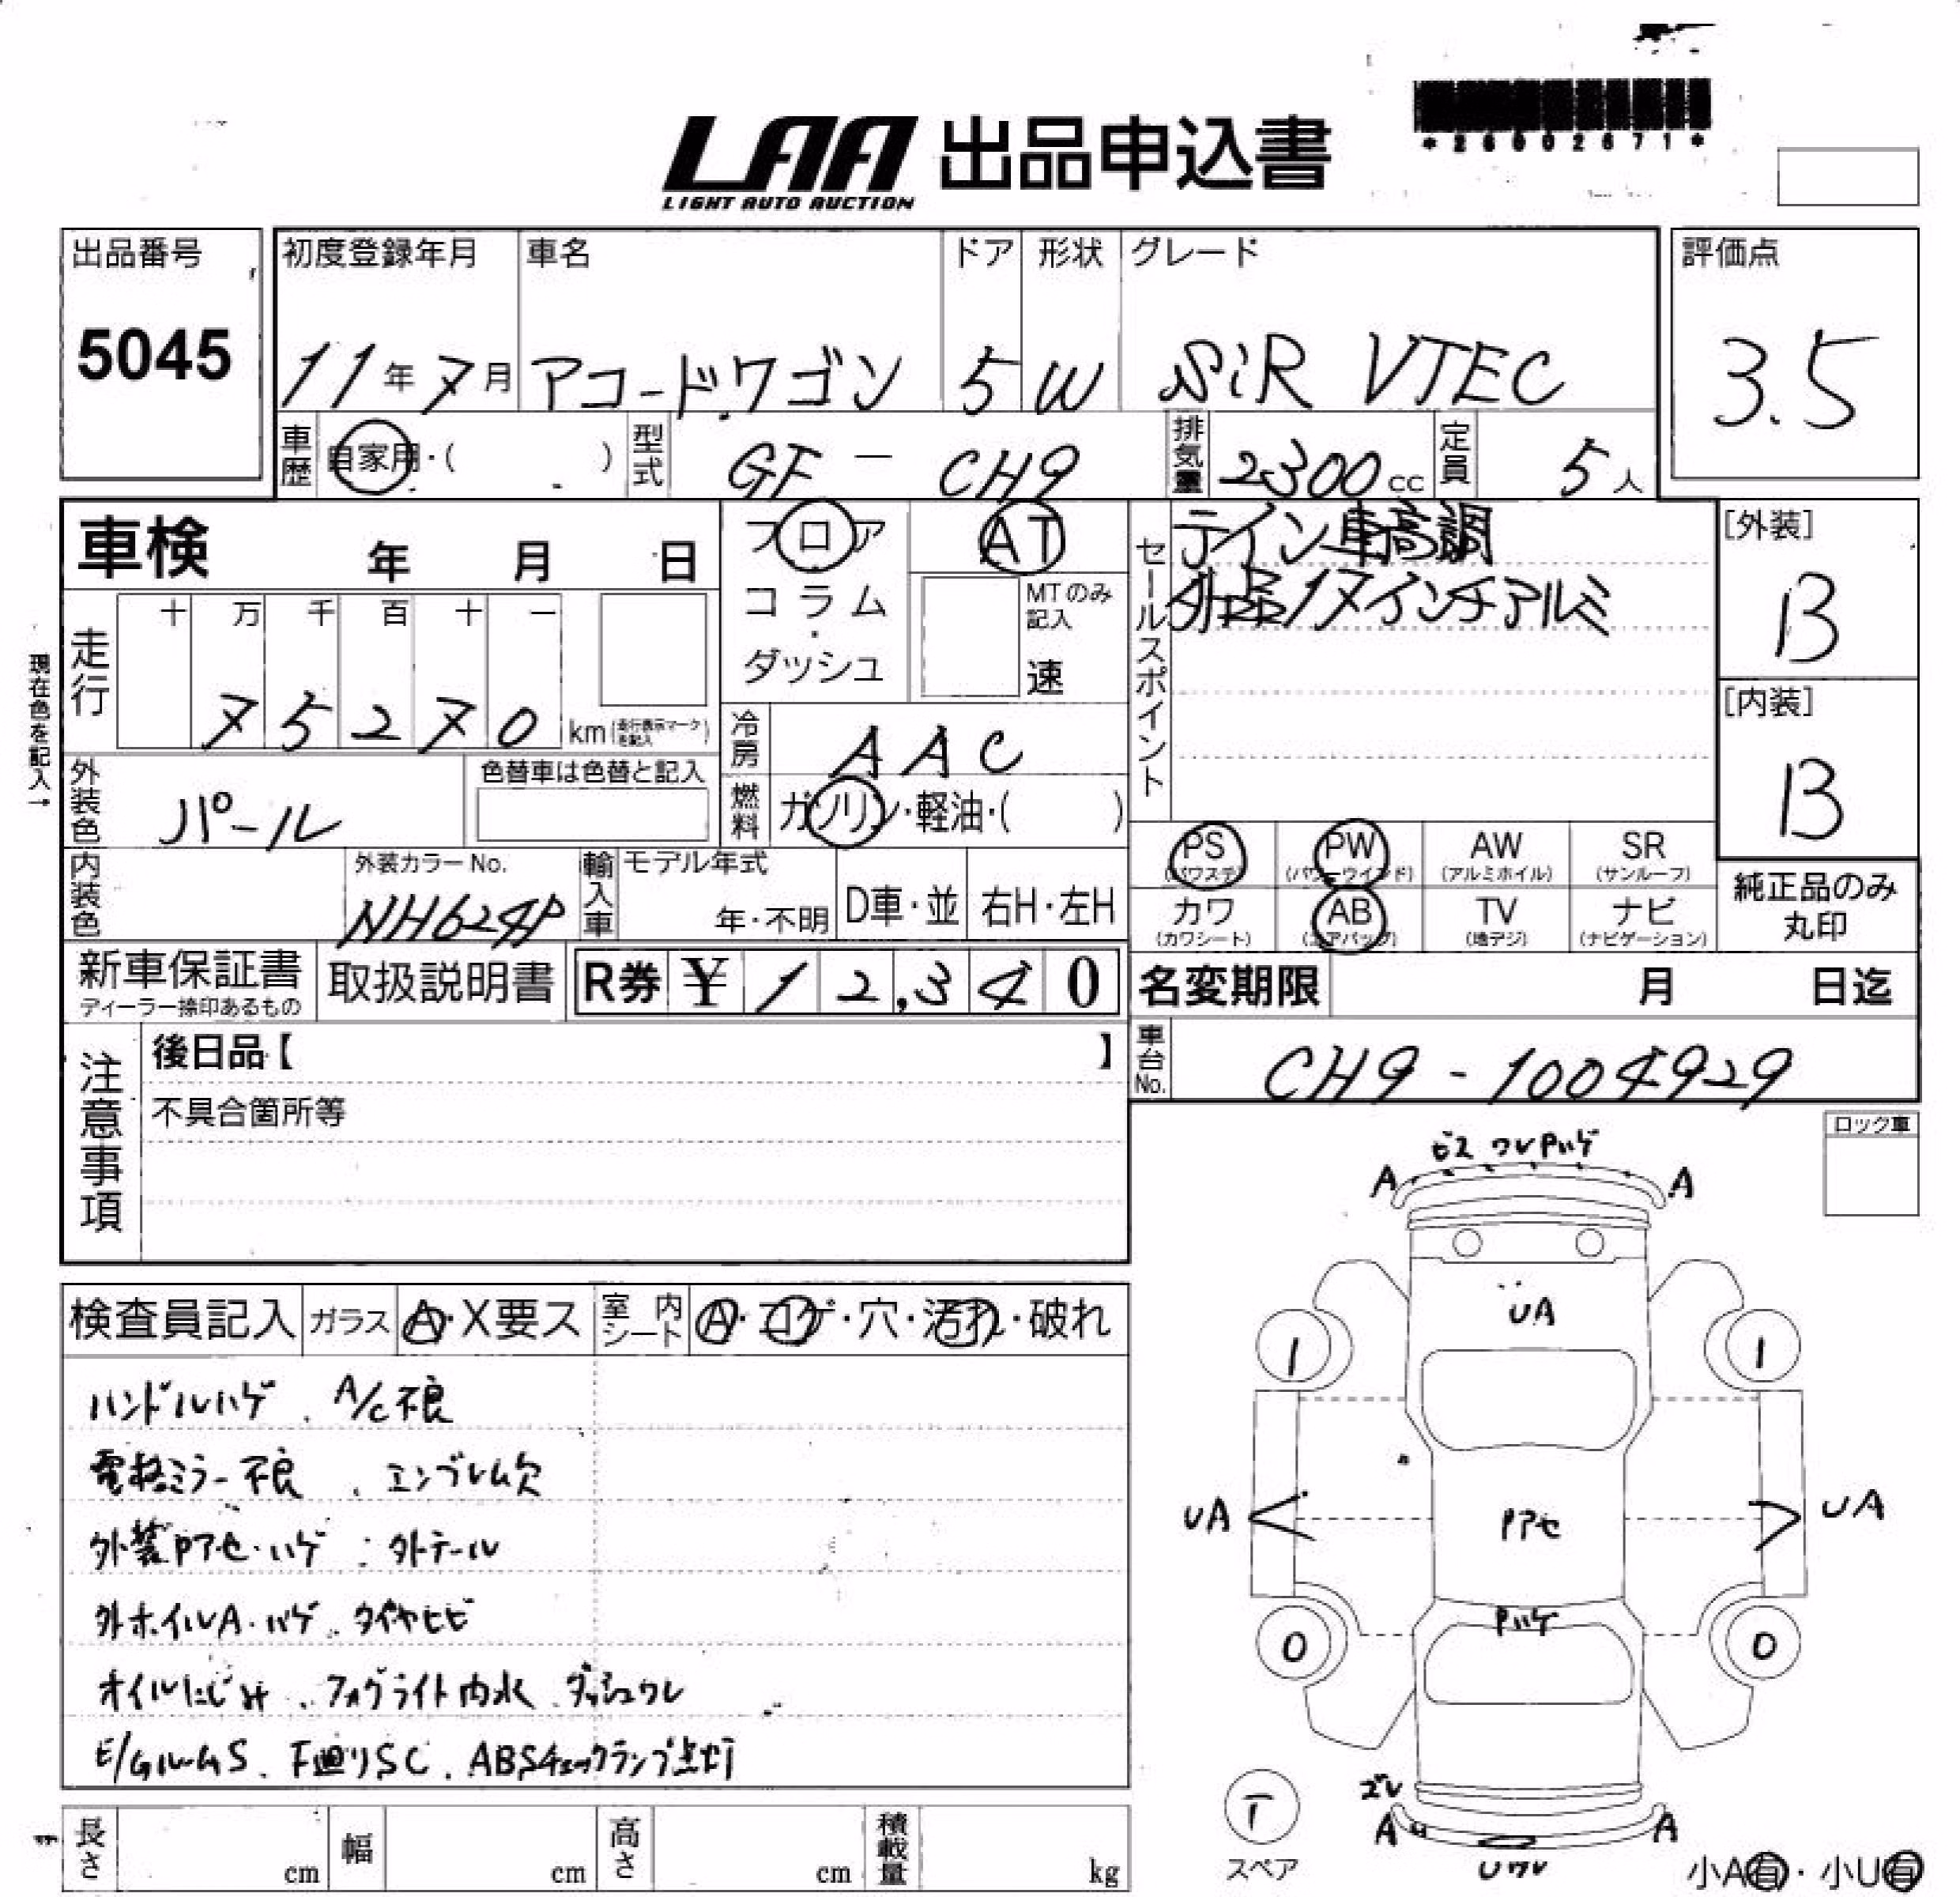 *26002671*
LAA 出品申込書
LIGHT AUTO AUCTION
出品番号
5045
初度登録年月 車名 ドア 形状 グレード
11年7月 アコードワゴン 5 W SiR VTEC
評価点
3.5
車歴 自家用・( ) 型式 GF - CH9 排気量 2300cc 定員 5人
車検 年 月 日
フロア
コラム
・
ダッシュ
AT
MTのみ
記入
速
セールスポイント
テイン車高調
外品17インチアルミ
[外装]
B
[内装]
B
純正品のみ
丸印
現在色を記入→
走行
十 万 千 百 十 一
7 5 2 7 0 km(走行表示マークを記入)
冷房 AAC
燃料 ガソリン・軽油・( )
外装色 パール
色替車は色替と記入
内装色
外装カラーNo.
NH624P
輸入車 モデル年式
年・不明 D車・並 右H・左H
PS (パワステ) PW (パワーウインド) AW (アルミホイル) SR (サンルーフ)
カワ (カワシート) AB (エアバッグ) TV (地デジ) ナビ (ナビゲーション)
新車保証書
ディーラー捺印あるもの
取扱説明書
R券 ¥ 1 2,3 4 0
名変期限 月 日迄
車台No. CH9-1004929
注意事項
後日品【 】
不具合箇所等
ロック車
検査員記入 ガラス A・X要ス 室内シート A・コゲ・穴・汚れ・破れ
ハンドルハゲ、A/C不良
電格ミラー不良、エンブレム欠
外装Pアセ・ハゲ 外テール
外ホイルA・ハゲ、タイヤヒビ
オイルにじみ、フォグライト内水、ダッシュワレ
E/GルームS、下廻りSC、ABSチェックランプ点灯
ビス ワレ Pハゲ
A A
UA
1 1
UA UA
Pアセ
Pハゲ
0 0
ズレ
A A
Uワレ
T
スペア
小A有・小U有
長さ cm 幅 cm 高さ cm 積載量 kg